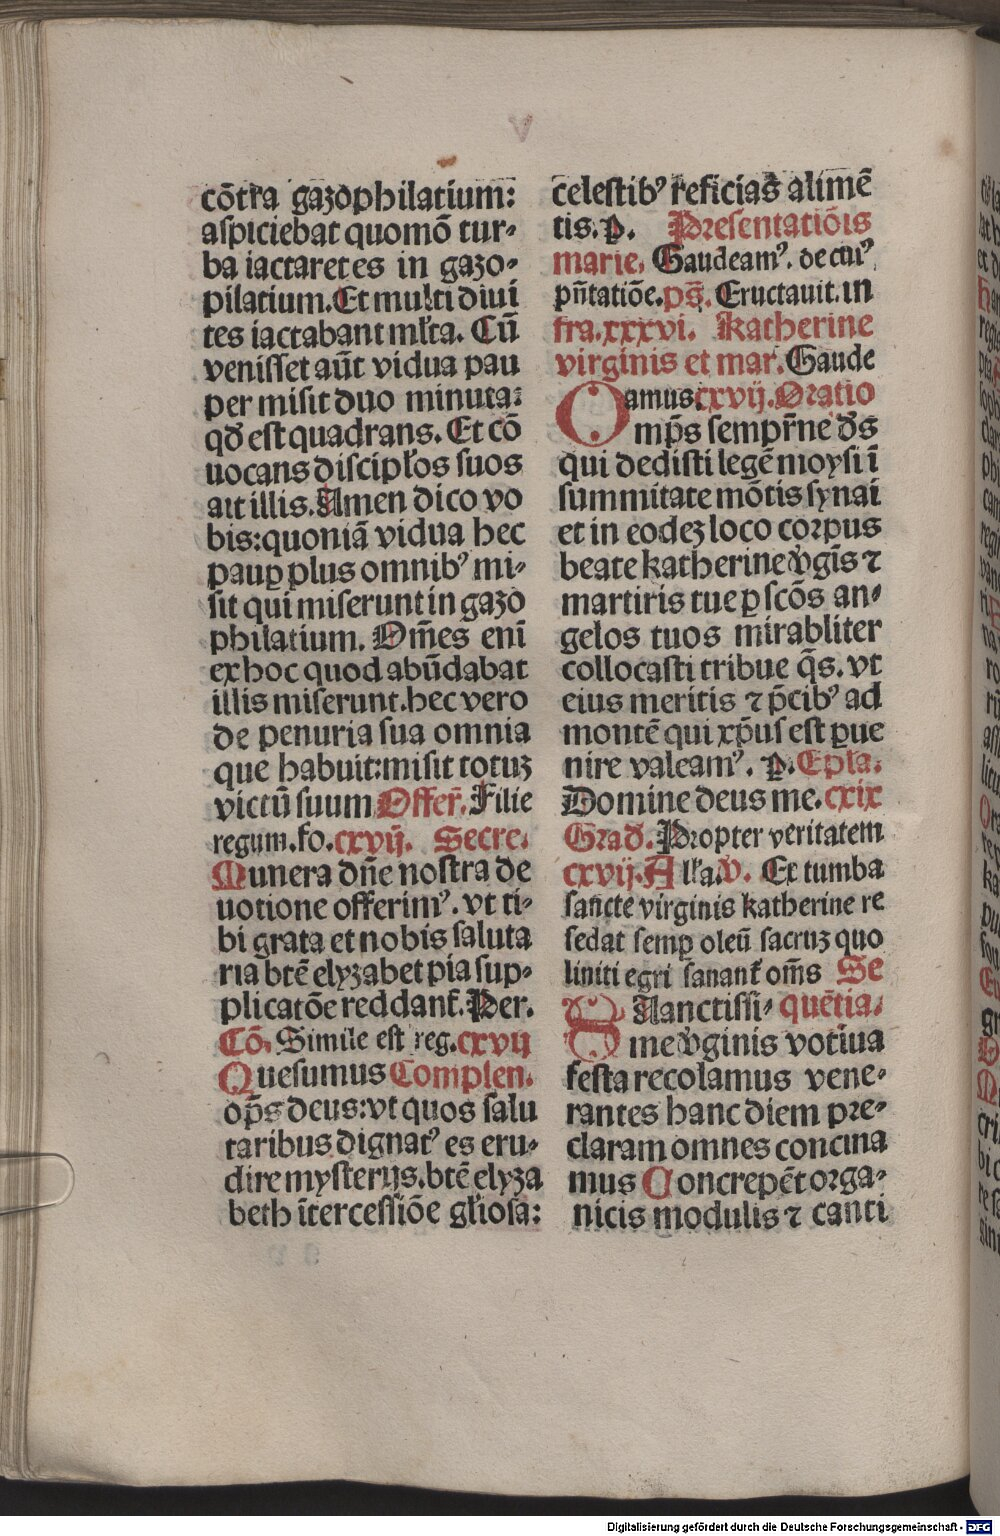 cōtra gazophilatium:
aspiciebat quomō tur-
ba iactaret es in gazo-
pilatium. Et multi diui
tes iactabant ml̄ta. Cū
venisset aūt vidua pau
per misit duo minuta:
qđ est quadrans. Et cō
uocans discipl̄os suos
ait illis. Amen dico vo
bis: quoniā vidua hec
paup̱ plus omnibꝰ mi-
sit qui miserunt in gazo
philatium. Om̄es eni
ex hoc quod abūdabat
illis miserunt. hec vero
de penuria sua omnia
que habuit: misit totuz
victū suum Offer̄. Filie
regum. fo. cxvij. Secre.
Munera dn̄e nostra de
uotione offerimꝰ. vt ti-
bi grata et nobis saluta
ria btē elyzabet pia sup-
plicatōe reddant̄. Per.
Cō. Simile est reg. cxvij
Quesumus Complen.
op̄s deus: vt quos salu
taribus dignatꝰ es eru-
dire mysterijs. btē elyza
beth ītercessiōe gl̄iosa:
celestibꝰ reficias alimē
tis. p. Presentatiōis
marie. Gaudeamꝰ. de cuiꝰ
pn̄tatiōe. ps̄. Eructauit. in
fra. xxxvi. Katherine
virginis et mar. Gaude
amus. cxvij. Oratio
Omp̄s sempr̄ne ds̄
qui dedisti legē moysi ī
summitate mōtis synai
et in eodez loco corpus
beate katherine v̄gīs ⁊
martiris tue p̱ scōs an-
gelos tuos mirabliter
collocasti tribue q̄s. vt
eius meritis ⁊ p̄cibꝰ ad
montē qui xp̄us est p̱ue
nire valeamꝰ. p. Epla.
Domine deus me. cxix
Grad̄. Propter veritatem
cxvij. All̄a. v̄. Ex tumba
sancte virginis katherine re
sedat semp̱ oleū sacruz quo
liniti egri sanant̄ om̄s Se
Sanctissi- quētia.
me v̄ginis votiua
festa recolamus vene-
rantes hanc diem pre-
claram omnes concina
mus Concrepēt orga-
nicis modulis ⁊ canti
Digitalisierung gefördert durch die Deutsche Forschungsgemeinschaft - DFG